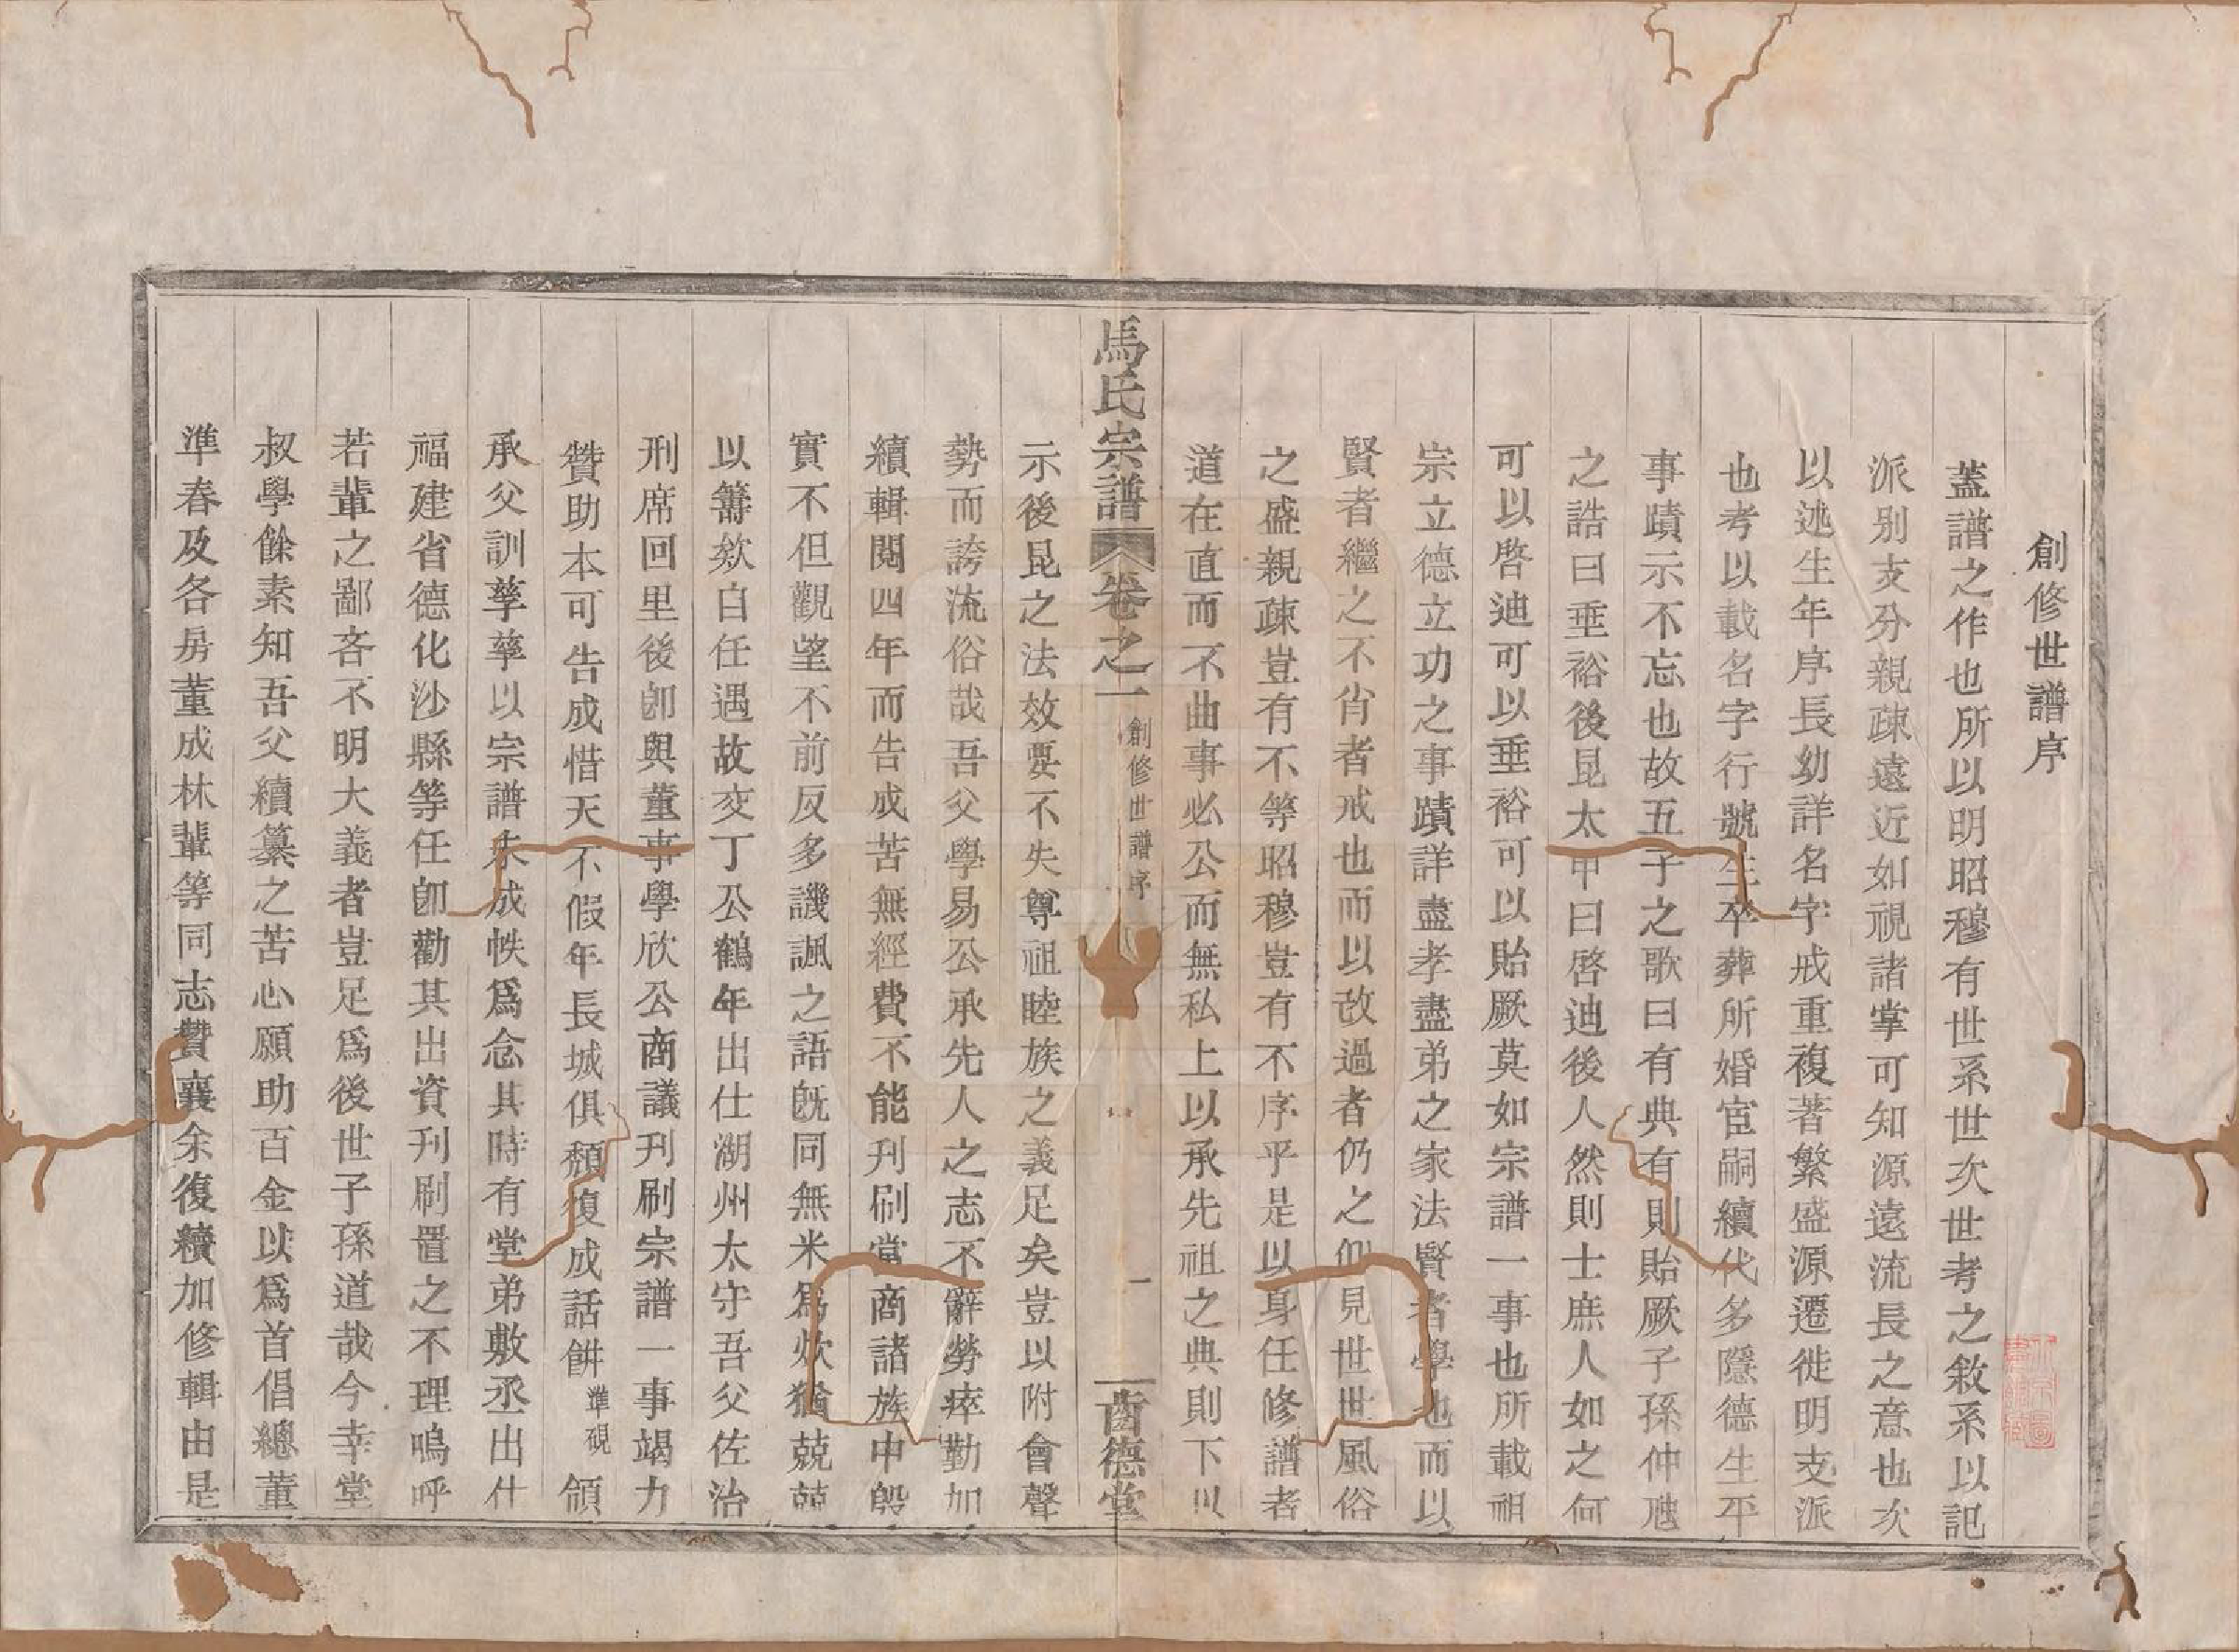 創修世譜序
蓋譜之作也所以明昭穆有世系世次世考之敘系以記
派別支分親疎遠近如視諸掌可知源遠流長之意也次
以述生年序長幼詳名字戒重複著繁盛源遷徙明支派
也考以載名字行號生卒葬所婚宦嗣續代多隱德生平
事蹟示不忘也故五子之歌曰有典有則貽厥子孫仲虺
之誥曰垂裕後昆太甲曰啓迪後人然則士庶人如之何
可以啓迪可以垂裕可以貽厥莫如宗譜一事也所載祖
宗立德立功之事蹟詳盡孝盡弟之家法賢者學也而以
賢者繼之不肖者戒也而以改過者仍之似見世世風俗
之盛親疎豈有不等昭穆豈有不序乎是以身任修譜者
道在直而不曲事必公而無私上以承先祖之典則下以
馬氏宗譜 卷之一 創修世譜序 一 齒德堂
示後昆之法效要不失尊祖睦族之義足矣豈以附會聲
勢而誇流俗哉吾父學易公承先人之志不辭勞瘁勤加
續輯閱四年而告成苦無經費不能刊刷嘗商諸族中殷
實不但觀望不前反多譏諷之語旣同無米爲炊猶兢兢
以籌欵自任遇故交丁公鶴年出仕湖州太守吾父佐治
刑席回里後卽與董事學欣公商議刊刷宗譜一事竭力
贊助本可告成惜天不假年長城俱頹復成話餅準硯領
承父訓孳孳以宗譜未成帙爲念其時有堂弟敷丞出仕
福建省德化沙縣等任卽勸其出資刊刷置之不理嗚呼
若輩之鄙吝不明大義者豈足爲後世子孫道哉今幸堂
叔學餘素知吾父續纂之苦心願助百金以爲首倡總董
準春及各房董成林輩等同志贊襄余復續加修輯由是